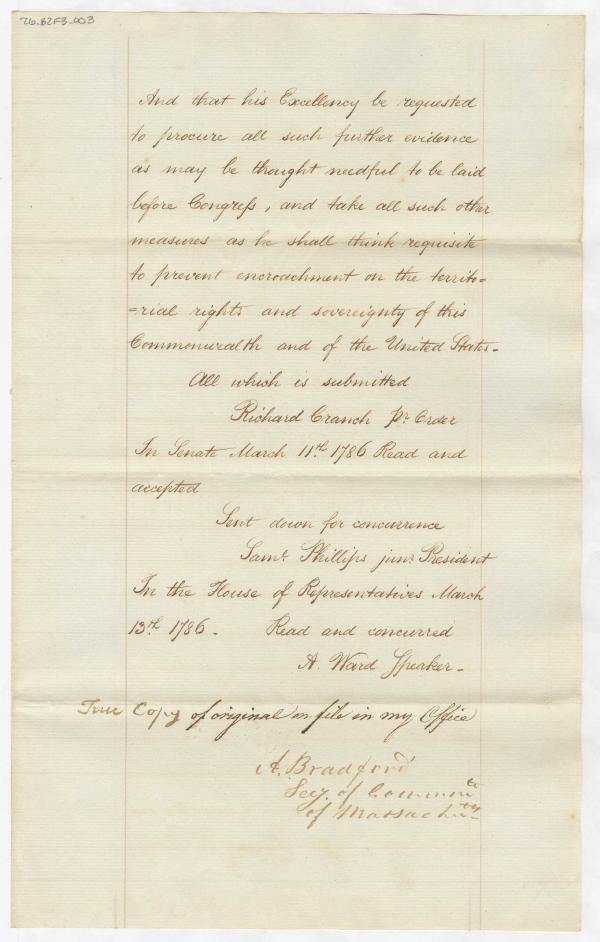 26-B2F3-003
And that his Excellency be requested
to procure all such further evidence
as may be thought needful to be laid
before Congreſs, and take all such other
measures as he shall think requisite
to prevent encroachment on the territo=
=rial rights and sovereignty of this
Commonwealth and of the United States-
All which is submitted
Richard Cranch pr Order
In Senate March 11th 1786 Read and
accepted
Sent down for concurrence
Saml Phillips junr President
In the House of Representatives March
13th 1786- Read and concurred
A. Ward Speaker-
True Copy of original on file in my Office
A. Bradford
Secy. of Common
of Massachu